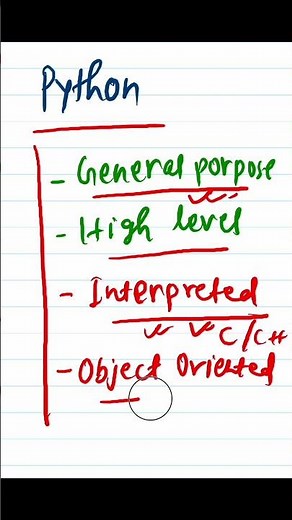 Python
- General porpose
- High level
- Interpreted
C/C++
- Object Oriented